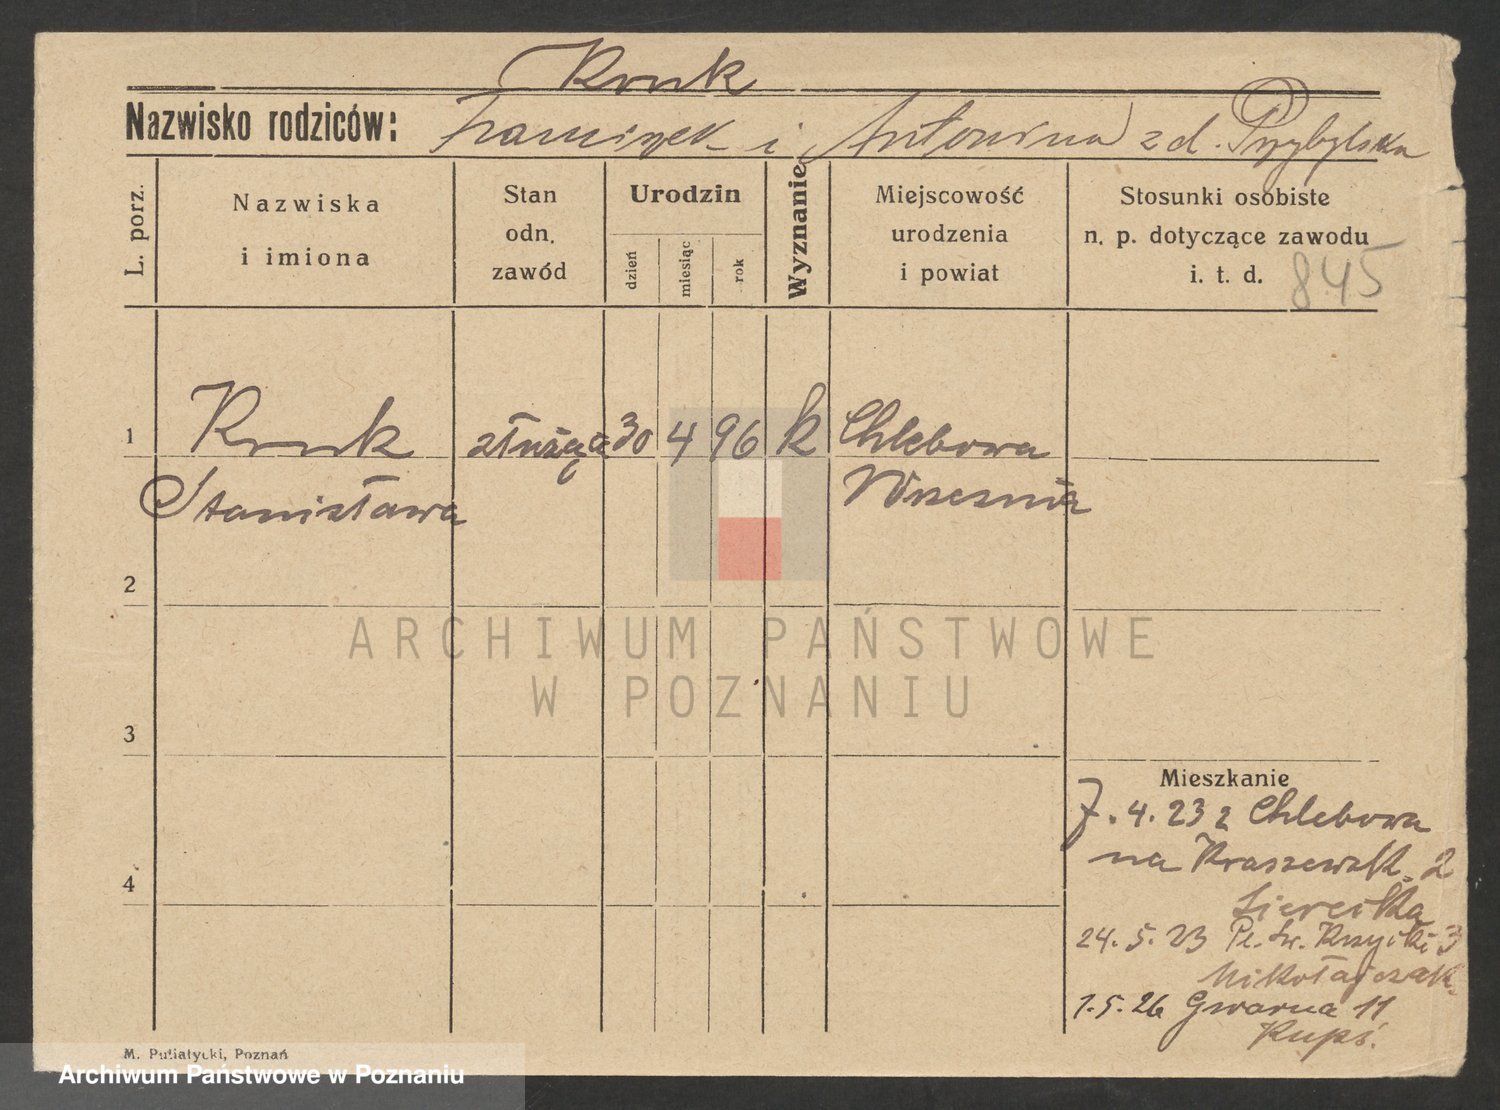 Kruk
Nazwisko rodziców: Franciszek i Antonina z d. Przybylska
L. porz.
Nazwiska
i imiona
Stan
odn.
zawód
Urodzin
dzień
miesiąc
rok
Wyznanie
Miejscowość
urodzenia
i powiat
Stosunki osobiste
n. p. dotyczące zawodu
i. t. d.
845
1
Kruk
Stanisława
służąca
30
4
96
k
Chlebowa
Września
2
3
4
ARCHIWUM PAŃSTWOWE
W POZNANIU
Mieszkanie
7. 4. 23 z Chlebowa
na Kraszewsk. 2
24. 5. 23 Pl. Św. Krzyski 3
Mikołajczak.
1. 5. 26 Gwarna 11
M. Putiatycki, Poznań
Archiwum Państwowe w Poznaniu